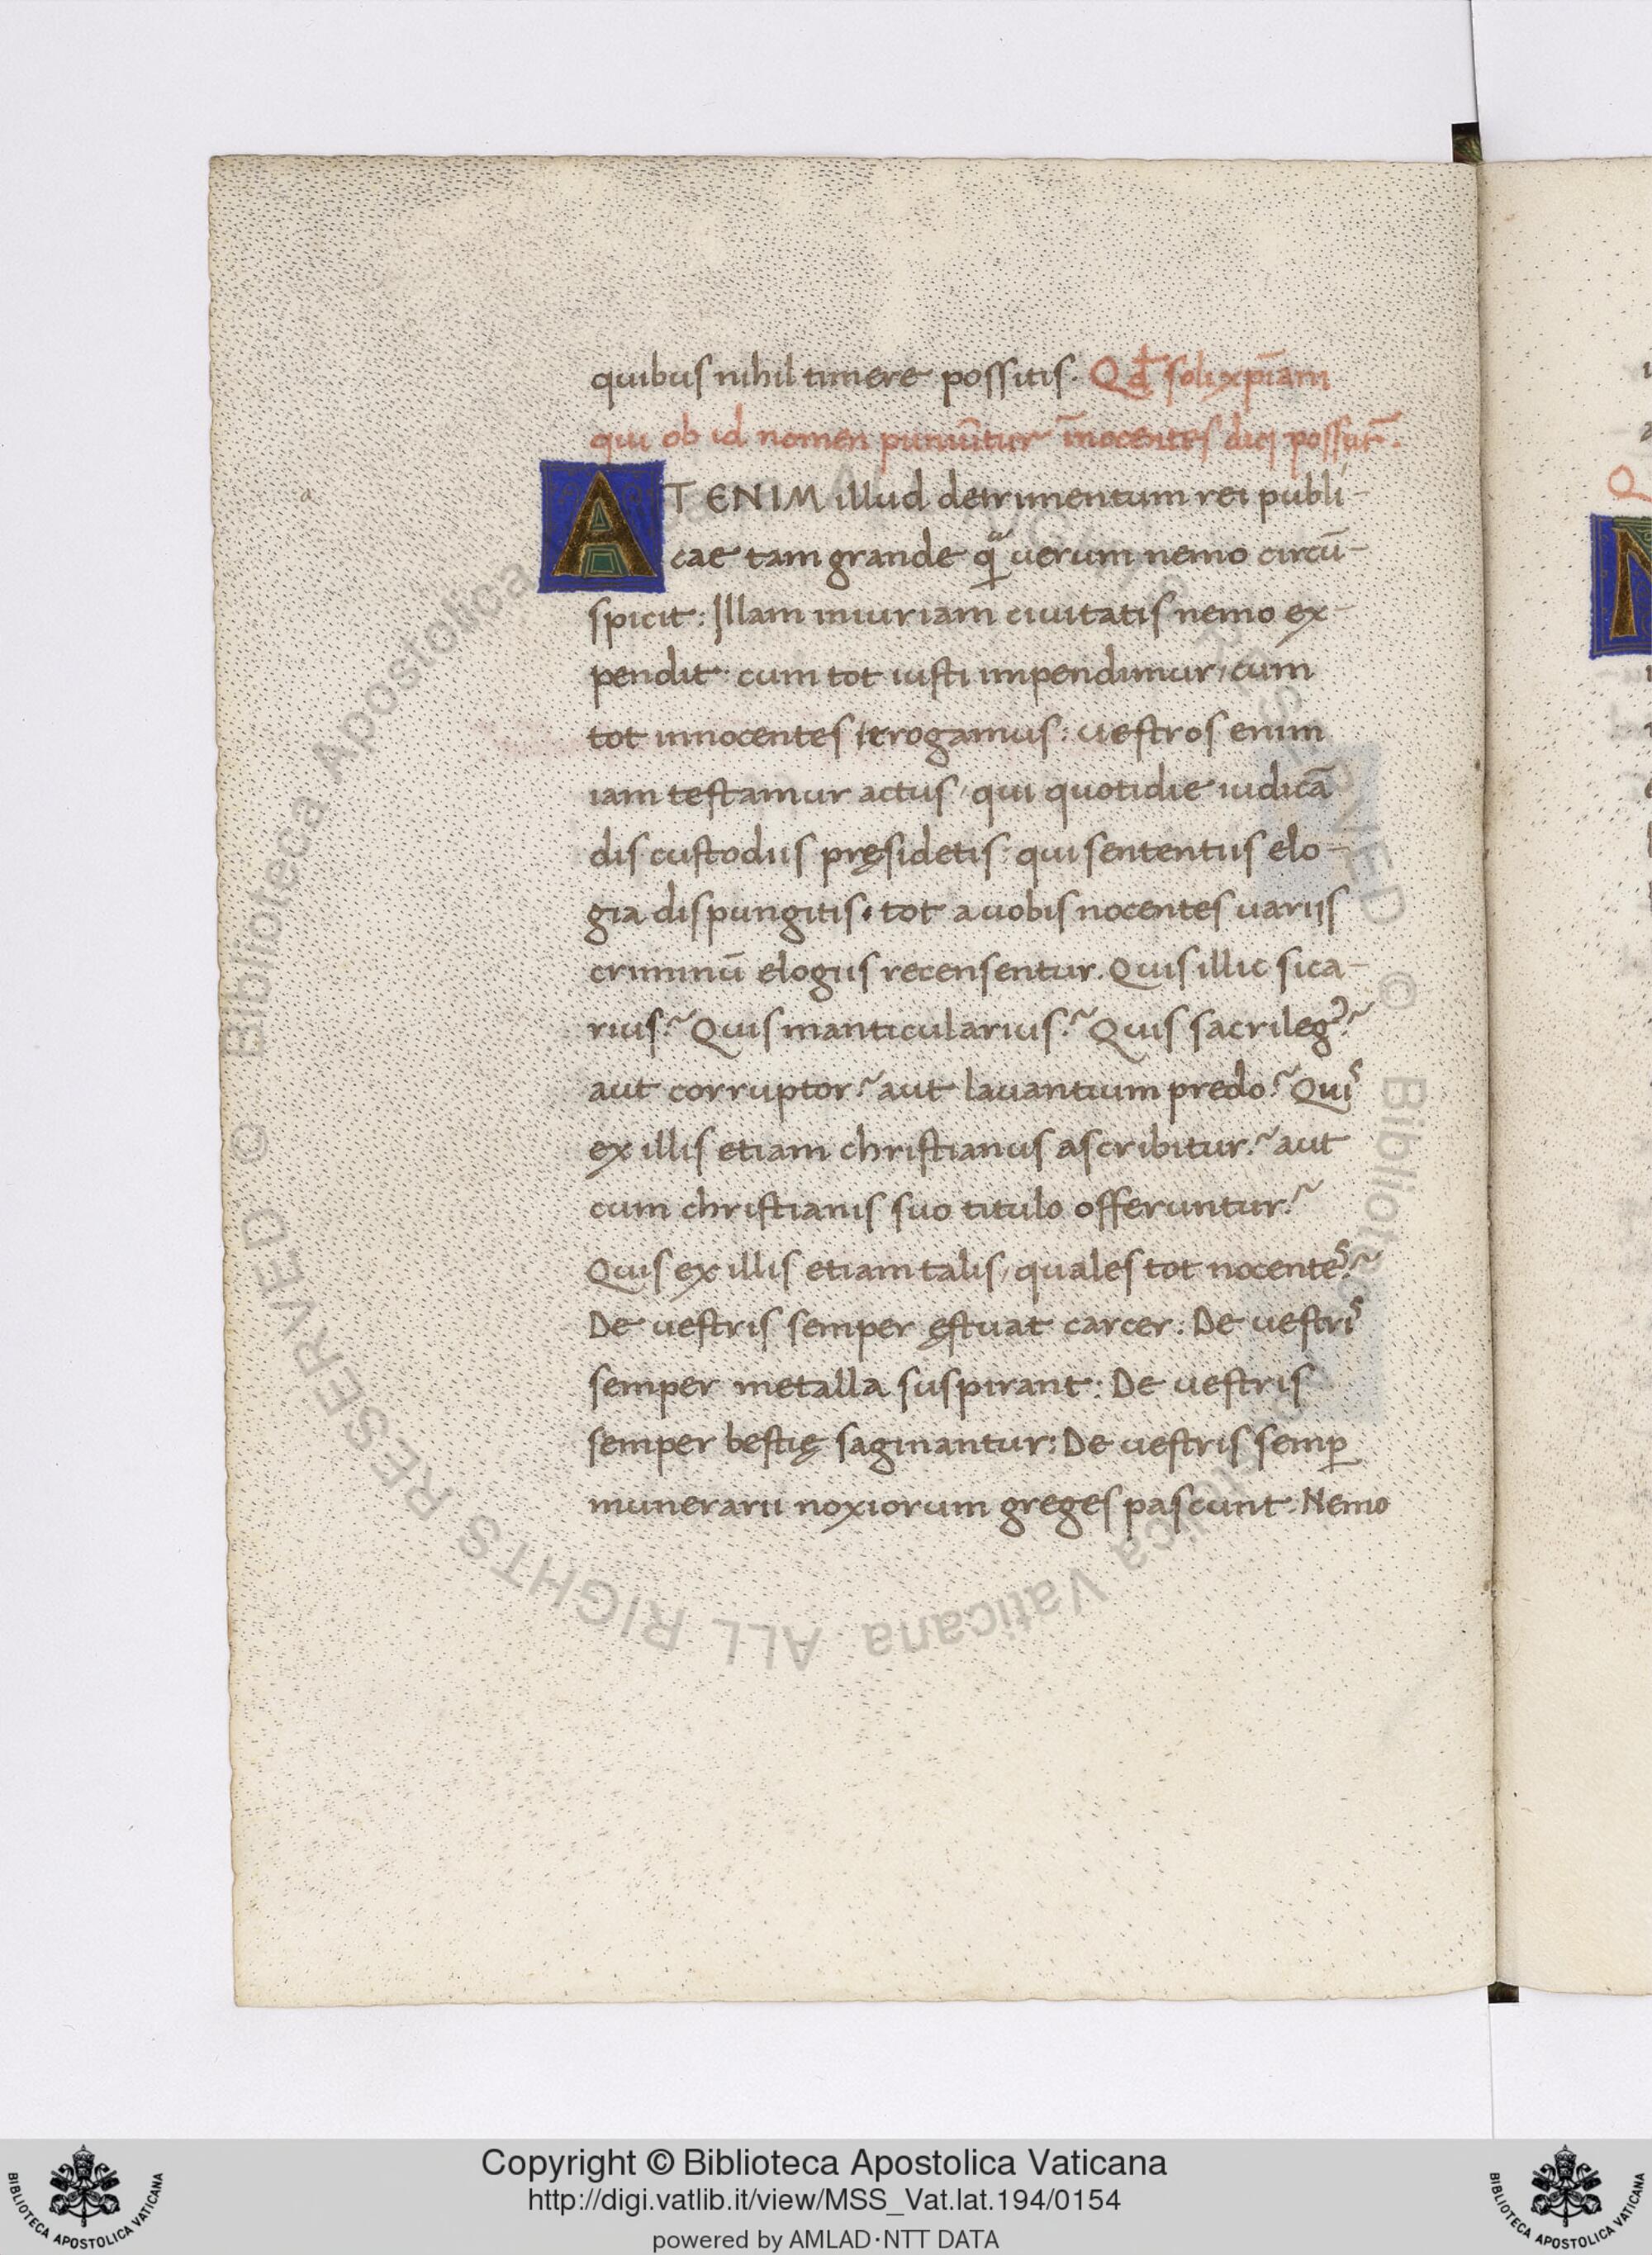 quibus nihil timere possitis. Qđ soli xp̄iani
qui ob id nomen puniūtur īnocentes dici possūt.
AT ENIM illud detrimentum rei publi-
cae tam grande qͣ uerum nemo circū-
spicit: Illam iniuriam ciuitatis nemo ex-
pendit: cum tot iusti impendimur, cum
tot innocentes erogamus: uestros enim
iam testamur actus, qui quotidie iudicā
dis custodiis pręsidetis: qui sententiis elo-
gia dispungitis. tot a uobis nocentes uariis
criminū elogiis recensentur. Quis illic sica-
rius? Quis manticularius? Quis sacrilegꝰ?
aut corruptor? aut lauantium predo? Quis
ex illis etiam christianus ascribitur? aut
cum christianis suo titulo offeruntur?
Quis ex illis etiam talis, quales tot nocentes?
De uestris semper ęstuat carcer: De uestris
semper metalla suspirant: De uestris
semper bestię saginantur: De uestris semꝑ
munerarii noxiorum greges pascunt. Nemo
Copyright © Biblioteca Apostolica Vaticana
http://digi.vatlib.it/view/MSS_Vat.lat.194/0154
powered by AMLAD·NTT DATA
BIBLIOTECA APOSTOLICA VATICANA
BIBLIOTECA APOSTOLICA VATICANA